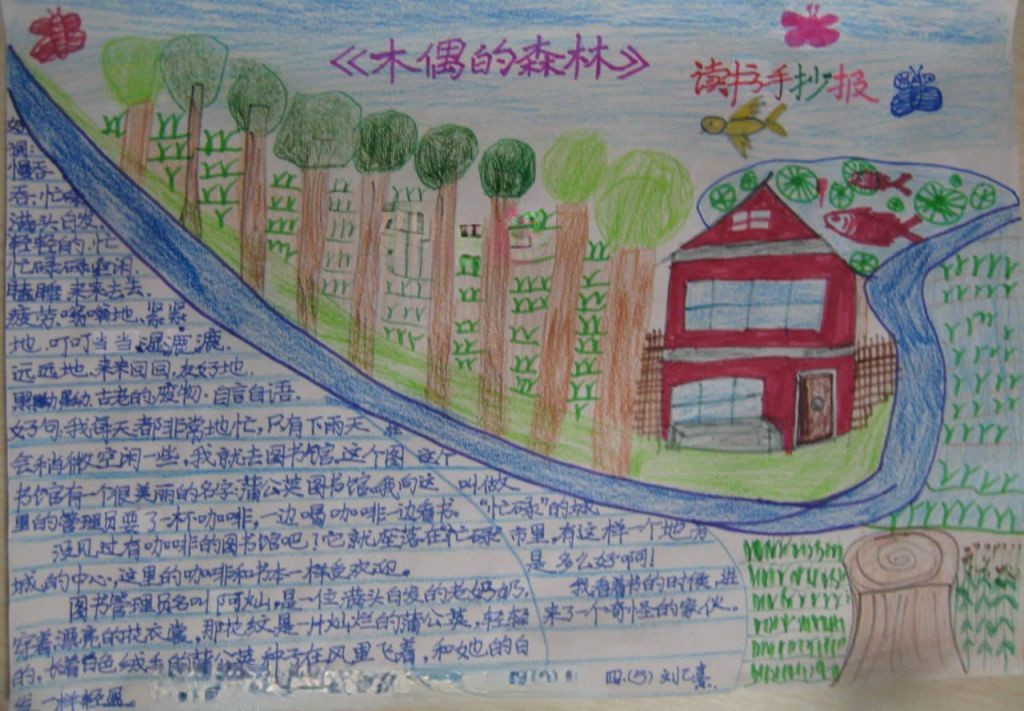 《木偶的森林》
读书手抄报
好
词:
慢吞
吞.忙碌
满头白发.
轻轻的.忙
忙碌碌.空闲.
瞌睡.来来去去.
疲劳.嗡嗡地.紧紧
地.叮叮当当.湿漉漉.
远远地.来来回回.友好地.
古老的.废物.自言自语.
好句:我每天都非常地忙,只有下雨天,
会稍微空闲一些,我就去图书馆.这个图
书馆有一个很美丽的名字:蒲公英图书馆.我向这
里的管理员要了一杯咖啡,一边喝咖啡一边看书.
没见过有咖啡的图书馆吧?它就座落在忙碌
城的中心,这里的咖啡和书本一样受欢迎。
图书管理员名叫阿灿,是一位满头白发的老奶奶,
穿着漂亮的花衣裳,那花纹是一片灿烂的蒲公英,轻轻
的,长着白色绒毛的蒲公英种子在风里飞着,和她的白
发一样轻盈。
这个
叫做
"忙碌"的城
市里,有这样一个地方
是多么好啊!
我看着书的时候,进
来了一个奇怪的家伙。
四.(5)